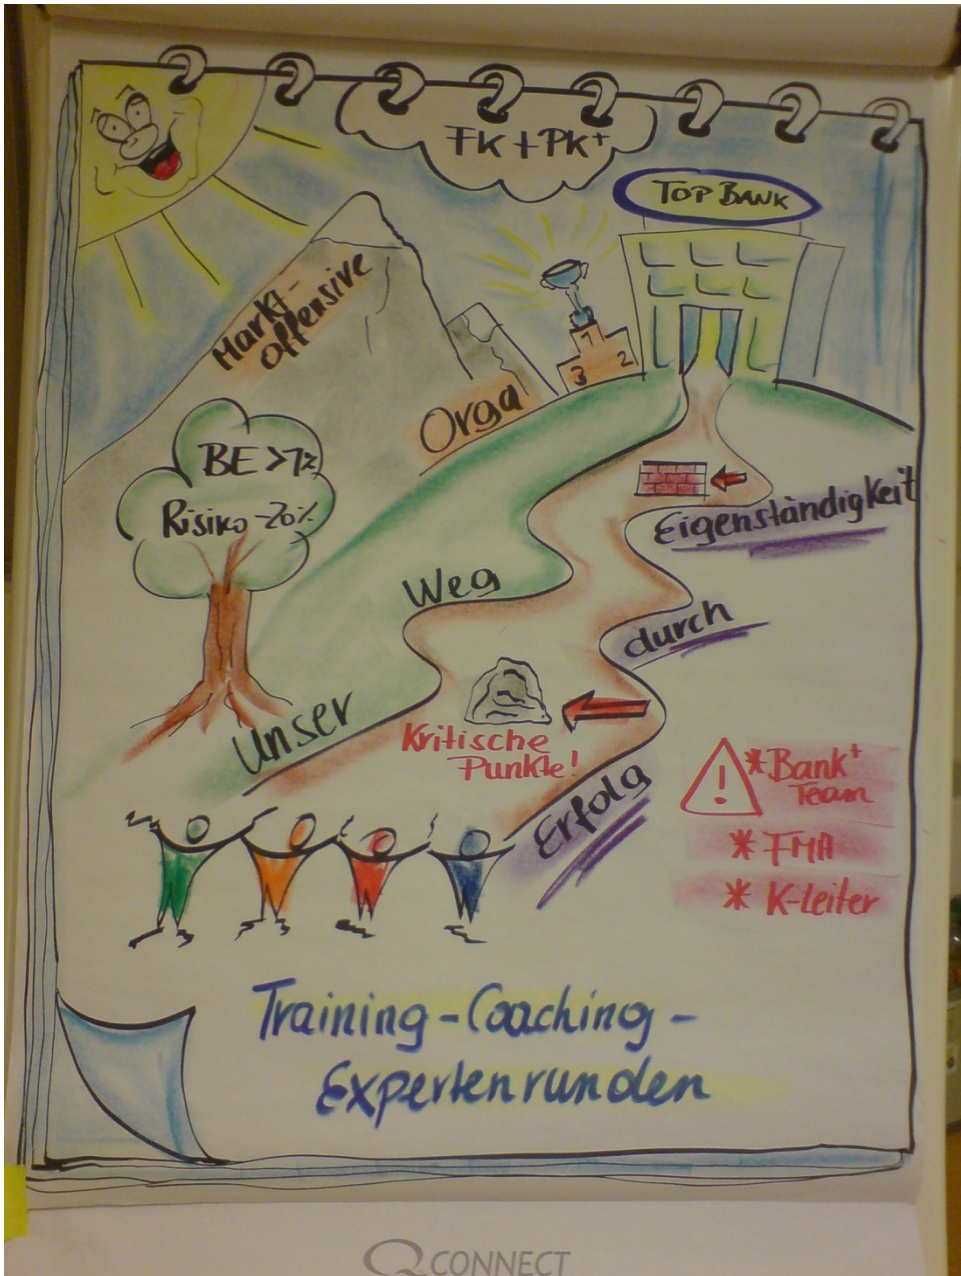 FK + PK+
TOP BANK
Markt-
offensive
1
2
3
Orga
BE > 1%
Risiko -20%
Eigenständigkeit
Weg
durch
Unser
Kritische
Punkte!
Erfolg
!
* Bank+
Team
* FMA
* K-Leiter
Training - Coaching -
Expertenrunden
CONNECT